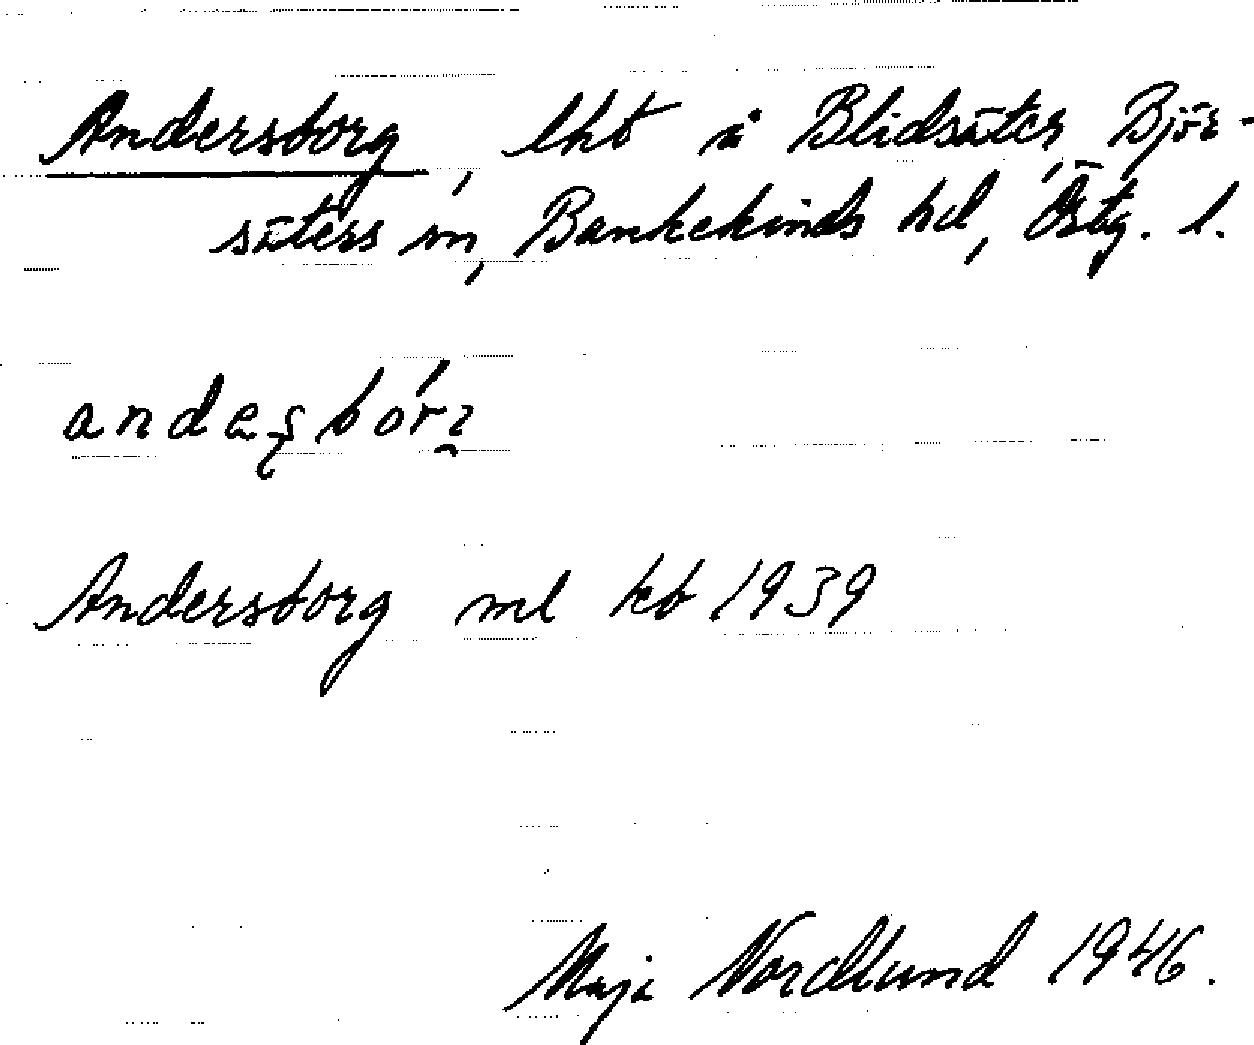 Andersborg, lht å Blidsäter, Björ-
säters sn, Bankekinds hd, Östg. l.
Andersborg ml kb 1939
Maja Nordlund 1946.